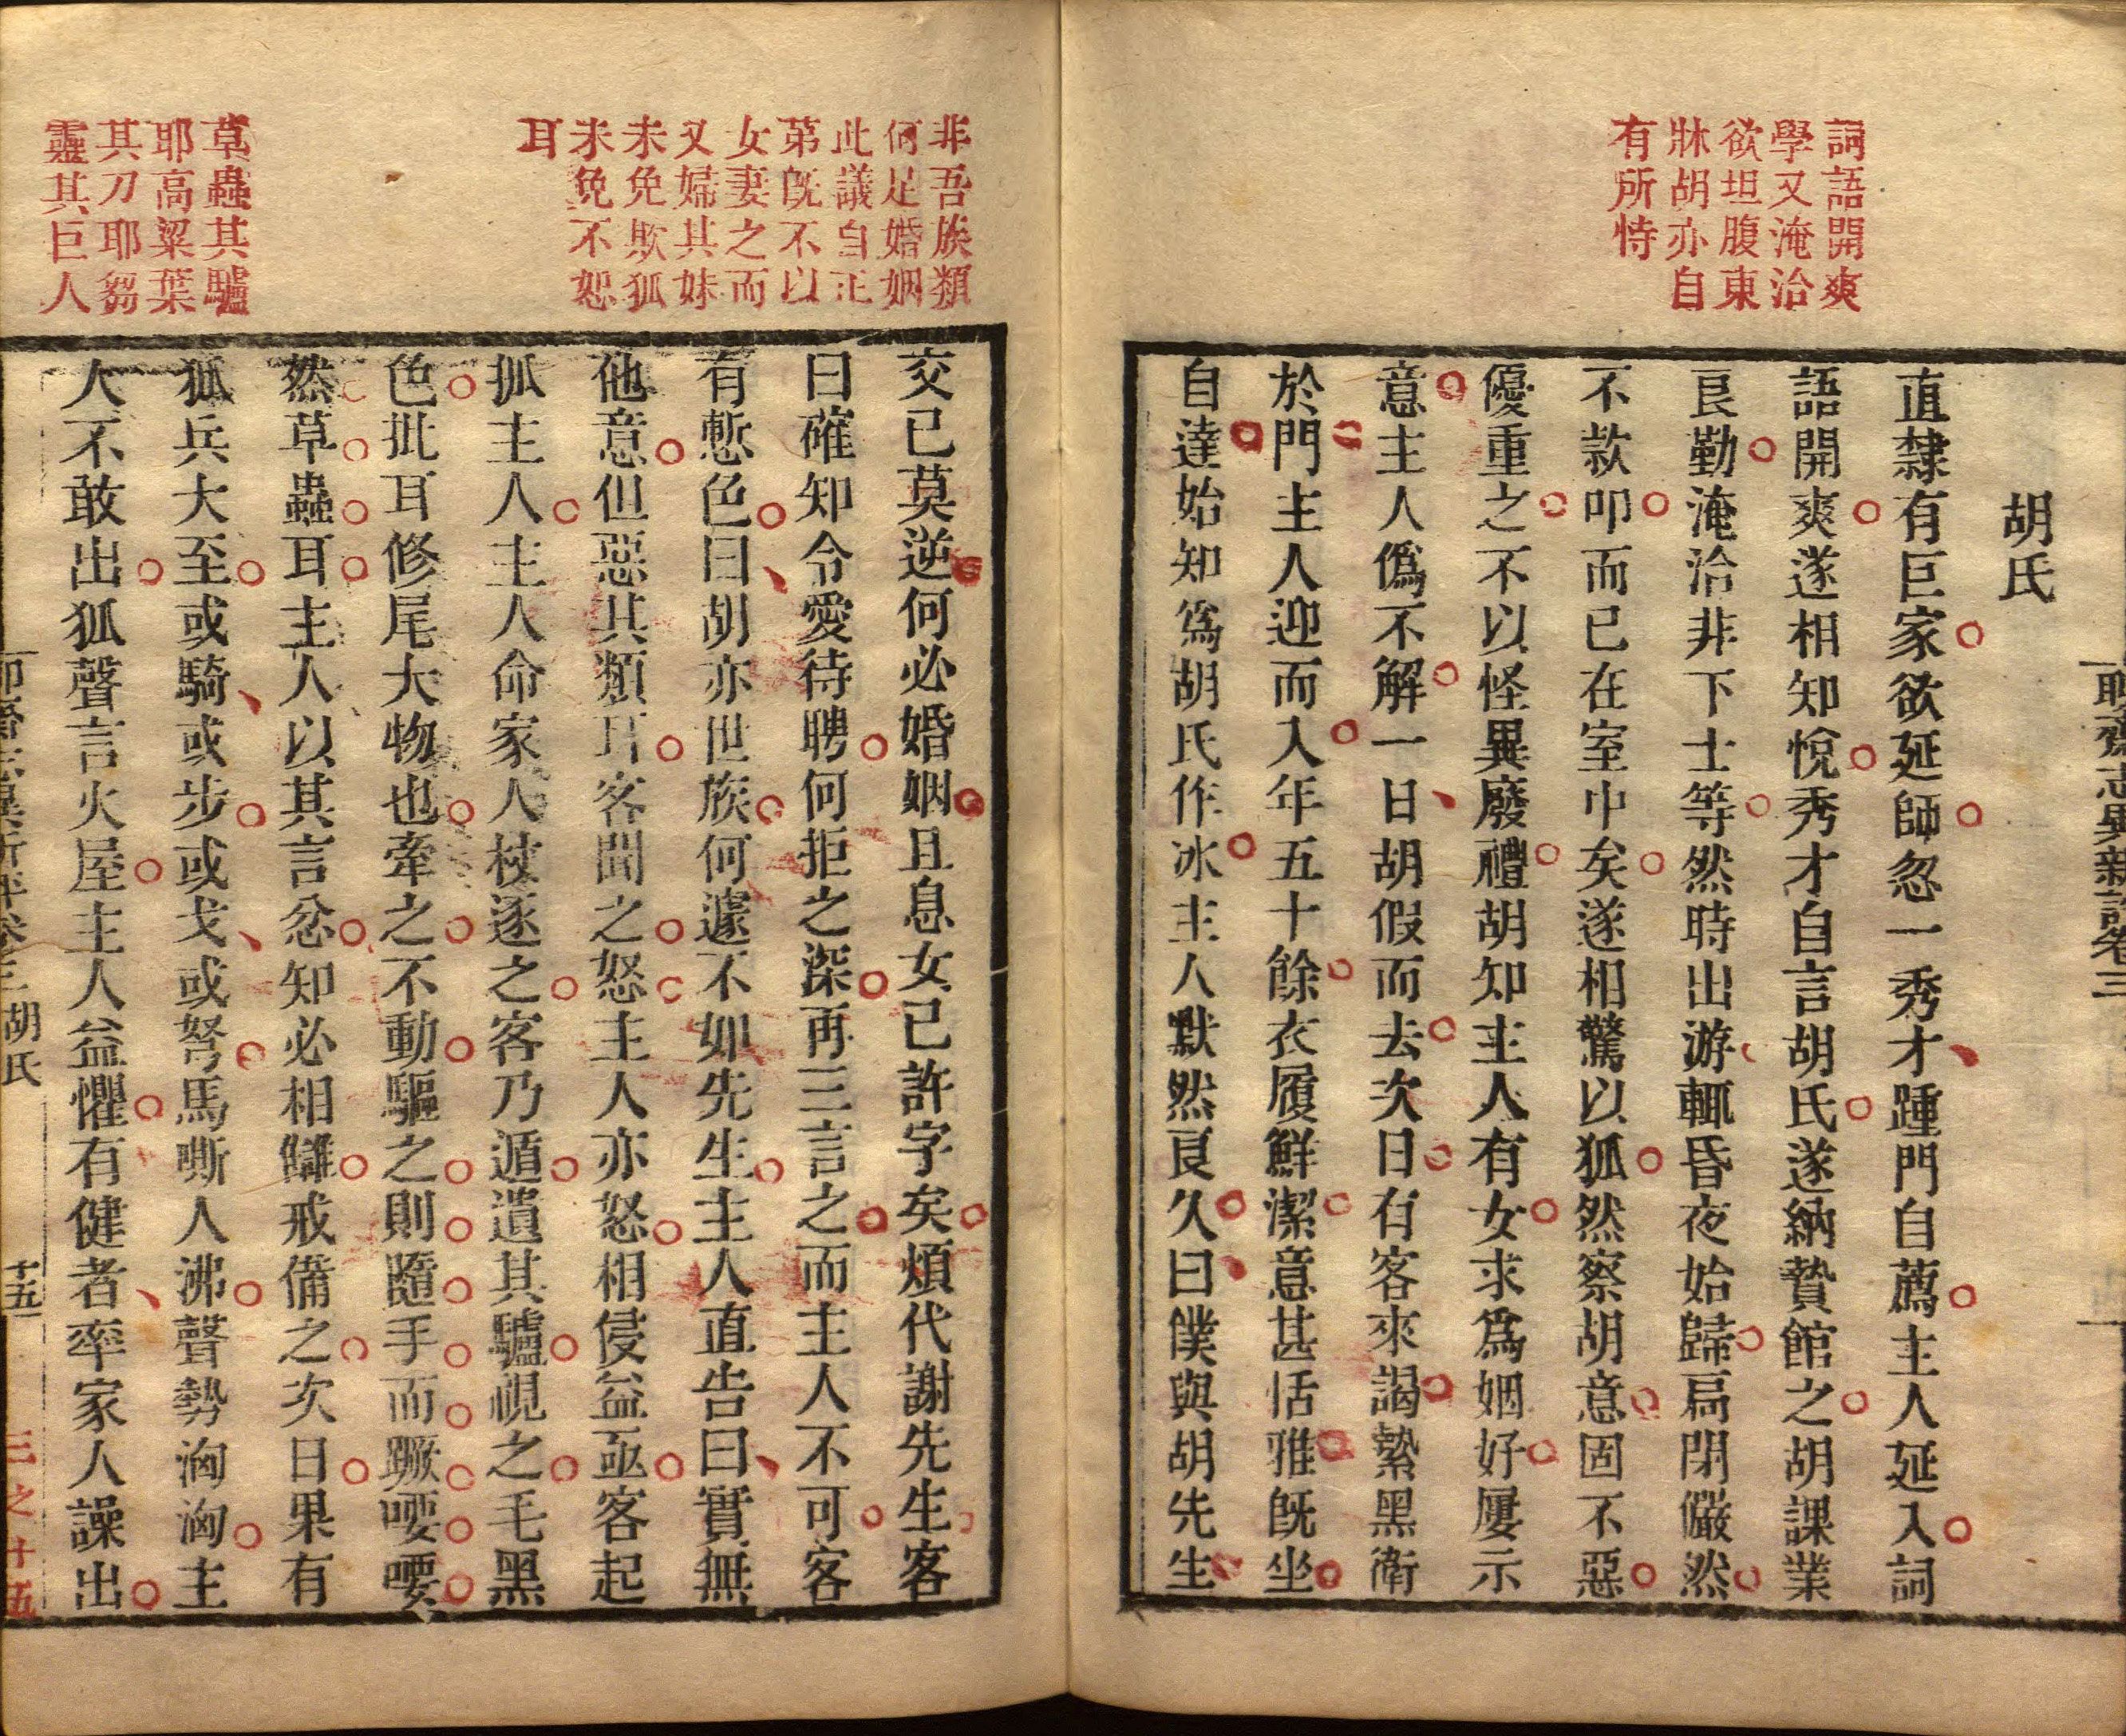 詞語開爽
學又淹洽
欲坦腹東
牀胡亦自
有所恃
胡氏
直隸有巨家欲延師忽一秀才踵門自薦主人延入詞
語開爽遂相知悅秀才自言胡氏遂納贄館之胡課業
良勤淹洽非下士等然時出游輒昏夜始歸扃閉儼然
不款叩而已在室中矣遂相驚以狐然察胡意固不惡
優重之不以怪異廢禮胡知主人有女求爲姻好屢示
意主人僞不解一日胡假而去次日有客來謁縶黑衛
於門主人迎而入年五十餘衣履鮮潔意甚恬雅既坐
自達始知爲胡氏作冰主人默然良久曰僕與胡先生
非吾族類
何足婚姻
此議自正
第既不以
女妻之而
又婦其妹
未免欺狐
未免不恕
耳
草蟲其驢
耶高粱葉
其刀耶芻
靈其巨人
交已莫逆何必婚姻且息女已許字矣煩代謝先生客
曰確知令愛待聘何拒之深再三言之而主人不可客
有慙色曰胡亦世族何遽不如先生主人直告曰實無
他意但惡其類耳客聞之怒主人亦怒相侵益亟客起
抓主人主人命家人杖逐之客乃遁遺其驢視之毛黑
色批耳修尾大物也牽之不動驅之則隨手而蹶喓喓
然草蟲耳主人以其言忿知必相讎戒備之次日果有
狐兵大至或騎或步或戈或弩馬嘶人沸聲勢洶洶主
人不敢出狐聲言火屋主人益懼有健者率家人譟出
胡氏
十五
三之十五